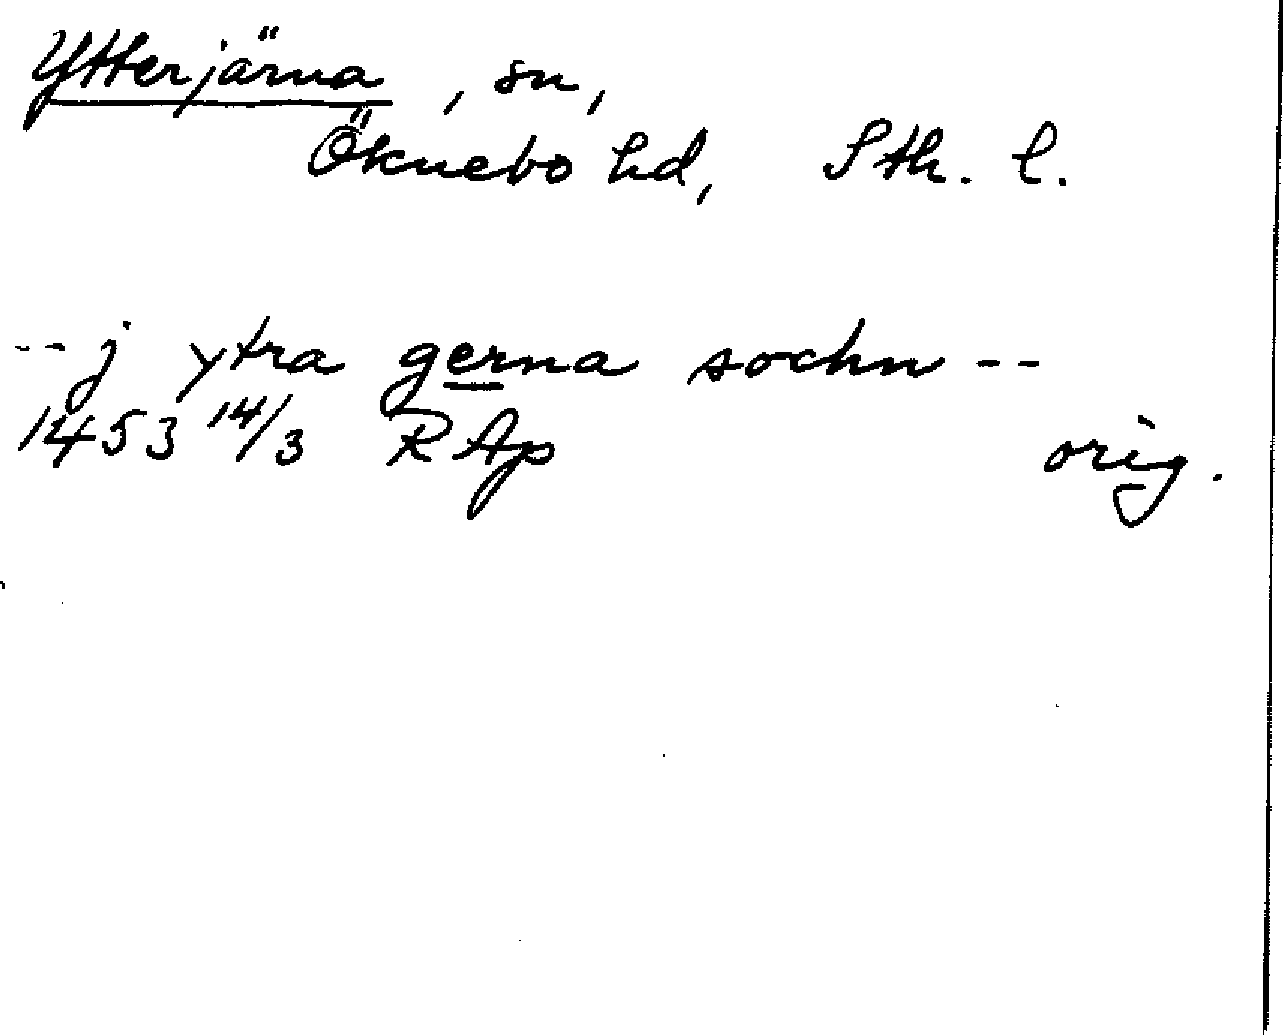 Ytterjärna, sn,
Öknebo hd, Sth. l.
-- j ytra gerna sochn --
1453 14/3 RAp orig.